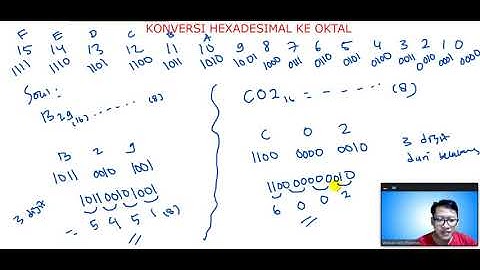 KONVERSI HEXADESIMAL KE OKTAL
F E D C B A
15 14 13 12 11 10 9 8 7 6 5 4 3 2 1 0
1111 1110 1101 1100 1011 1010 1001 1000 0111 0110 0101 0100 0011 0010 0001 0000
Soal :
B29(16) ....... (8)
B 2 9
1011 0010 1001
101100101001
3 digit
= 5 4 5 1 (8)
C02 16 = ...... (8)
C 0 2
1100 0000 0010
110000000010
6 0 0 2
3 digit
dari belakang